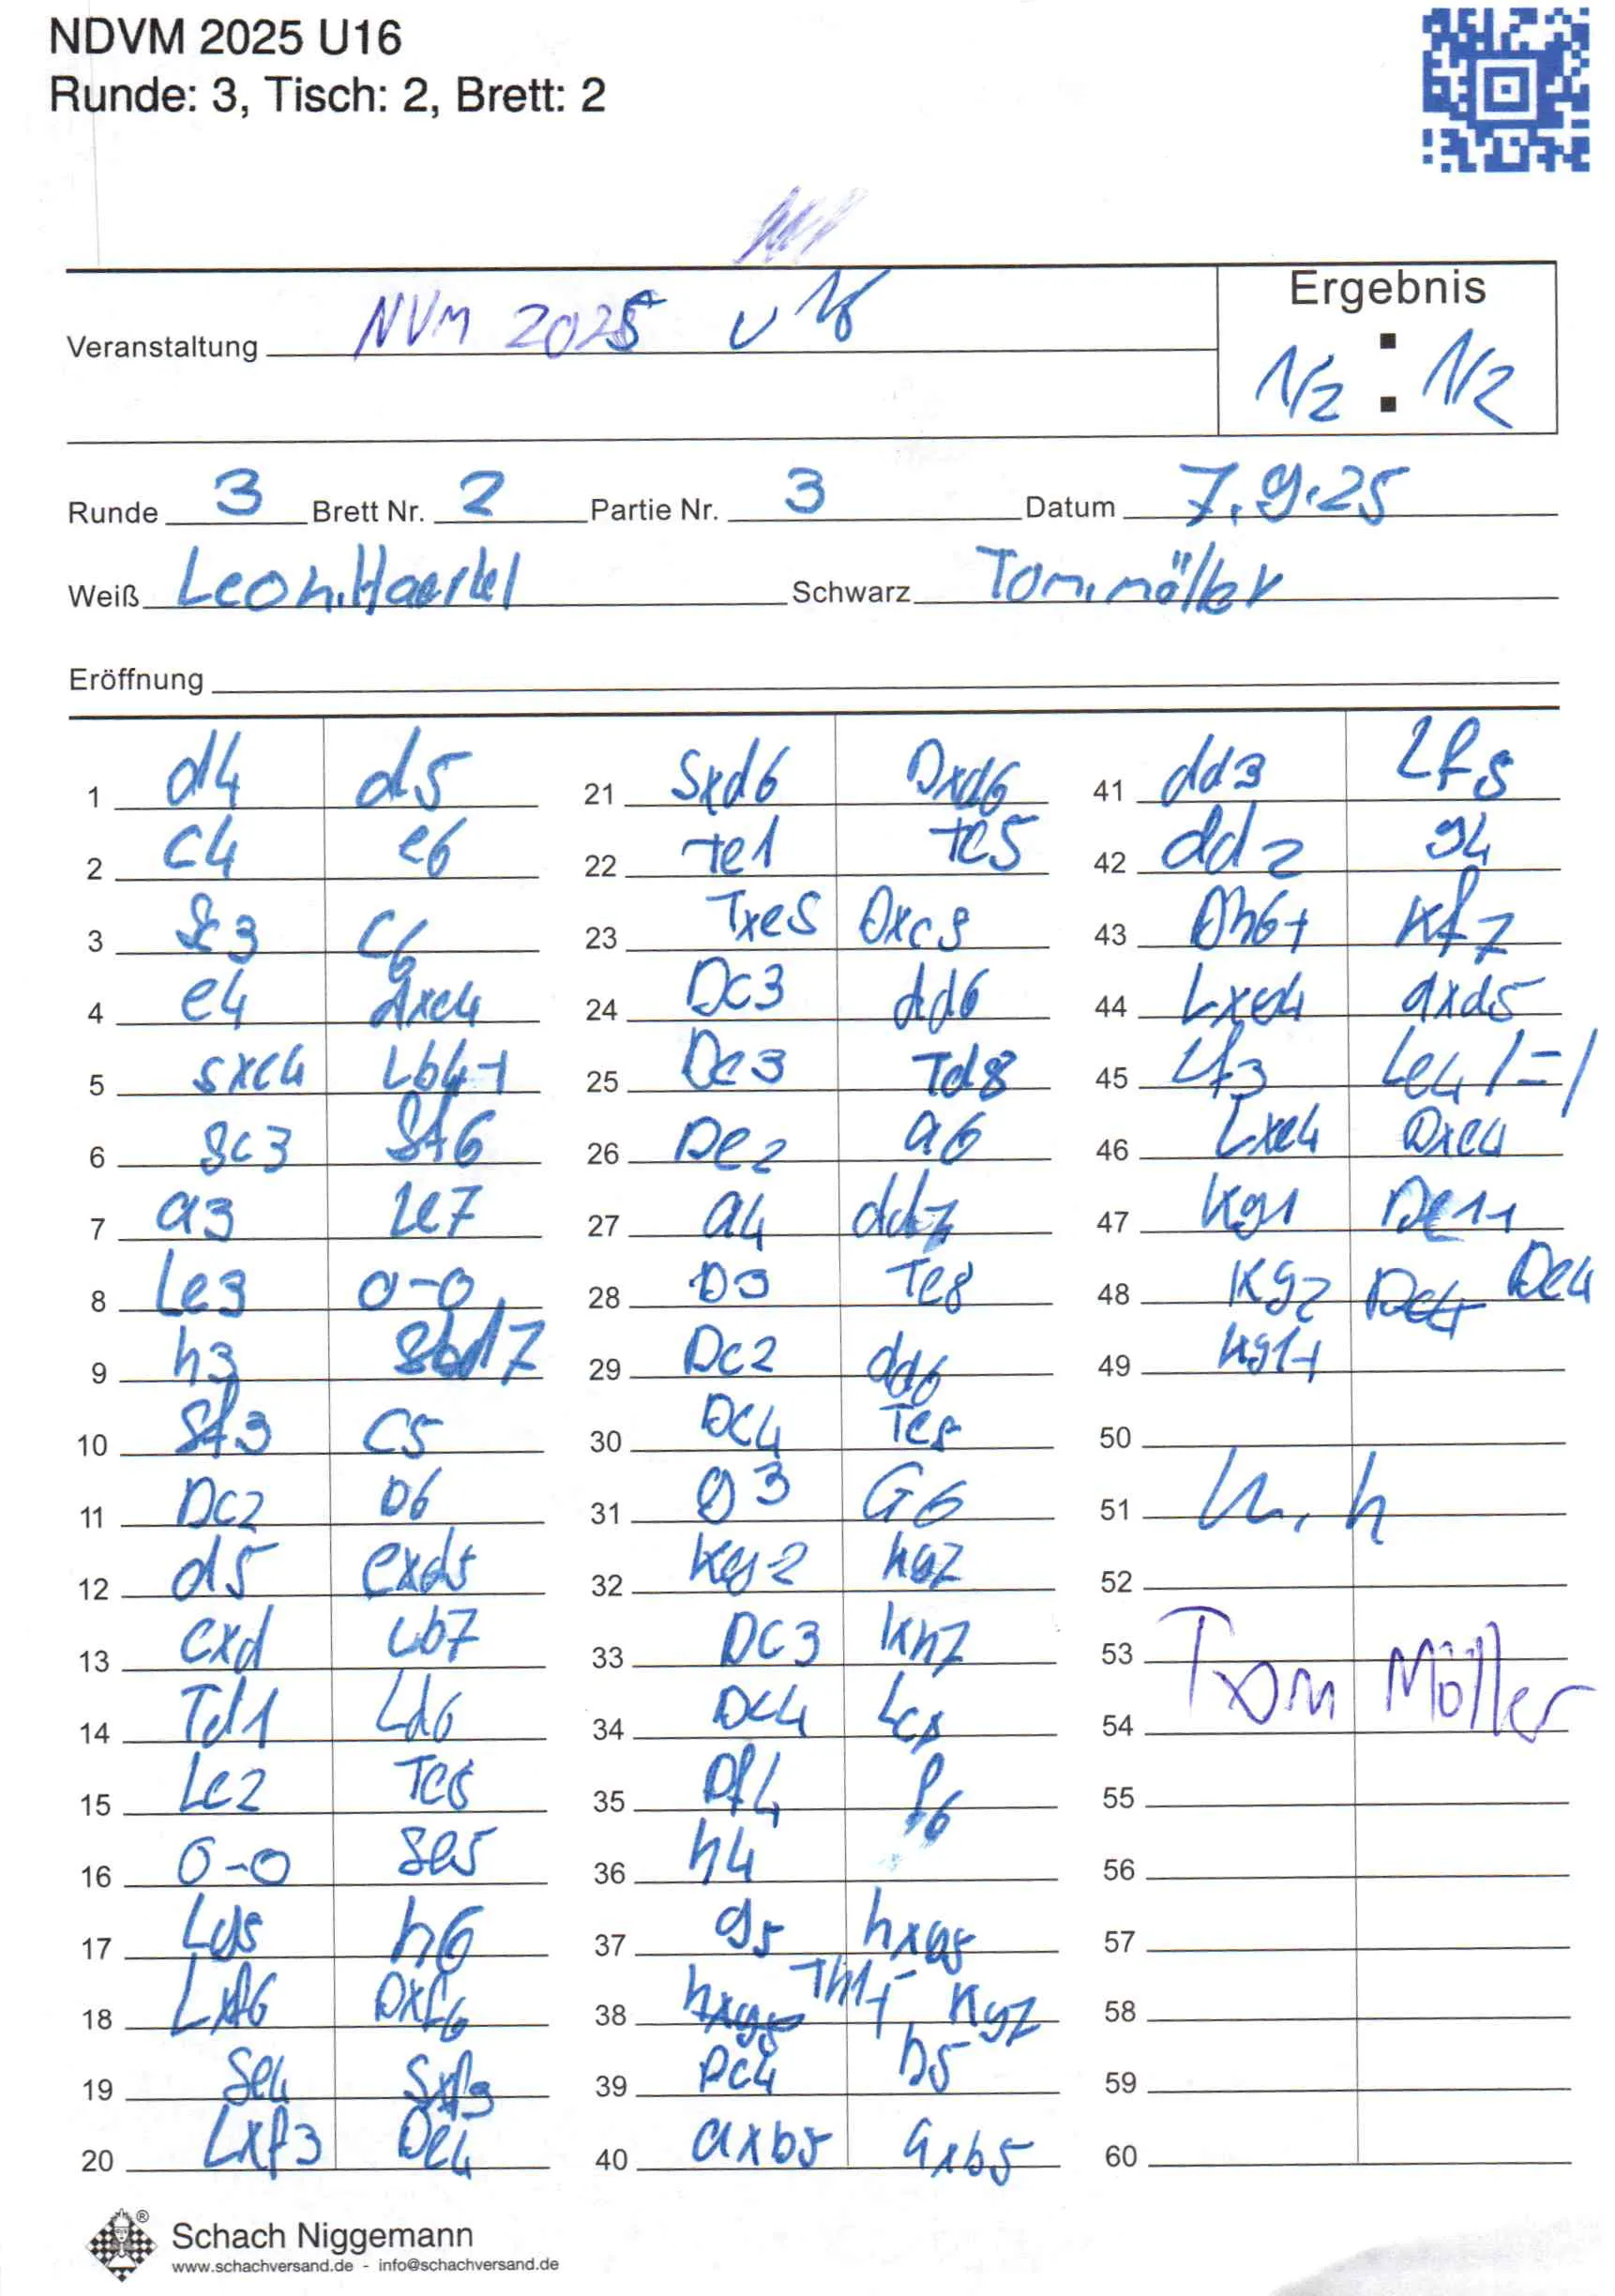 NDVM 2025 U16
Runde: 3, Tisch: 2, Brett: 2
Veranstaltung NVM 2025 U16
Ergebnis
1/2 : 1/2
Runde 3 Brett Nr. 2 Partie Nr. 3 Datum 7.9.25
Weiß Leon.Haertel Schwarz Tom.möller
Eröffnung
1 d4 d5
2 c4 e6
3 Sc3 c6
4 e4 dxe4
5 Sxe4 Lb4+
6 Sc3 Sf6
7 a3 Le7
8 Le3 0-0
9 h3 Sbd7
10 Sf3 c5
11 Dc2 b6
12 d5 exd5
13 cxd Lb7
14 Td1 Ld6
15 Le2 Te8
16 0-0 Se5
17 Lg5 h6
18 Lxf6 Dxf6
19 Se4 Sxf3
20 Lxf3 De4
21 Sxd6 Dxd6
22 Te1 Te5
23 Txe5 Dxe5
24 Dc3 dd6
25 De3 Td8
26 De2 a6
27 a4 dd7
28 b3 Te8
29 Dc2 dd6
30 Dc4 Te5
31 g3 G6
32 Kg2 kg7
33 Dc3 Kh7
34 Dc4 Lc8
35 Df4 f6
36 h4
37 g5 hxg5
38 hxg5 Th1+ Kg7
39 Dc4 b5
40 axb5 axb5
41 dd3 Lf5
42 dd2 g4
43 Dh6+ Kf7
44 Lxe4 dxd5
45 Lf3 Le4 /=/
46 Lxe4 Dxe4
47 Kg1 De1+
48 Kg2 De4 De4
49 Kg1+
50
51 L. h
52
53 Tom Möller
54
55
56
57
58
59
60
Schach Niggemann
www.schachversand.de - info@schachversand.de